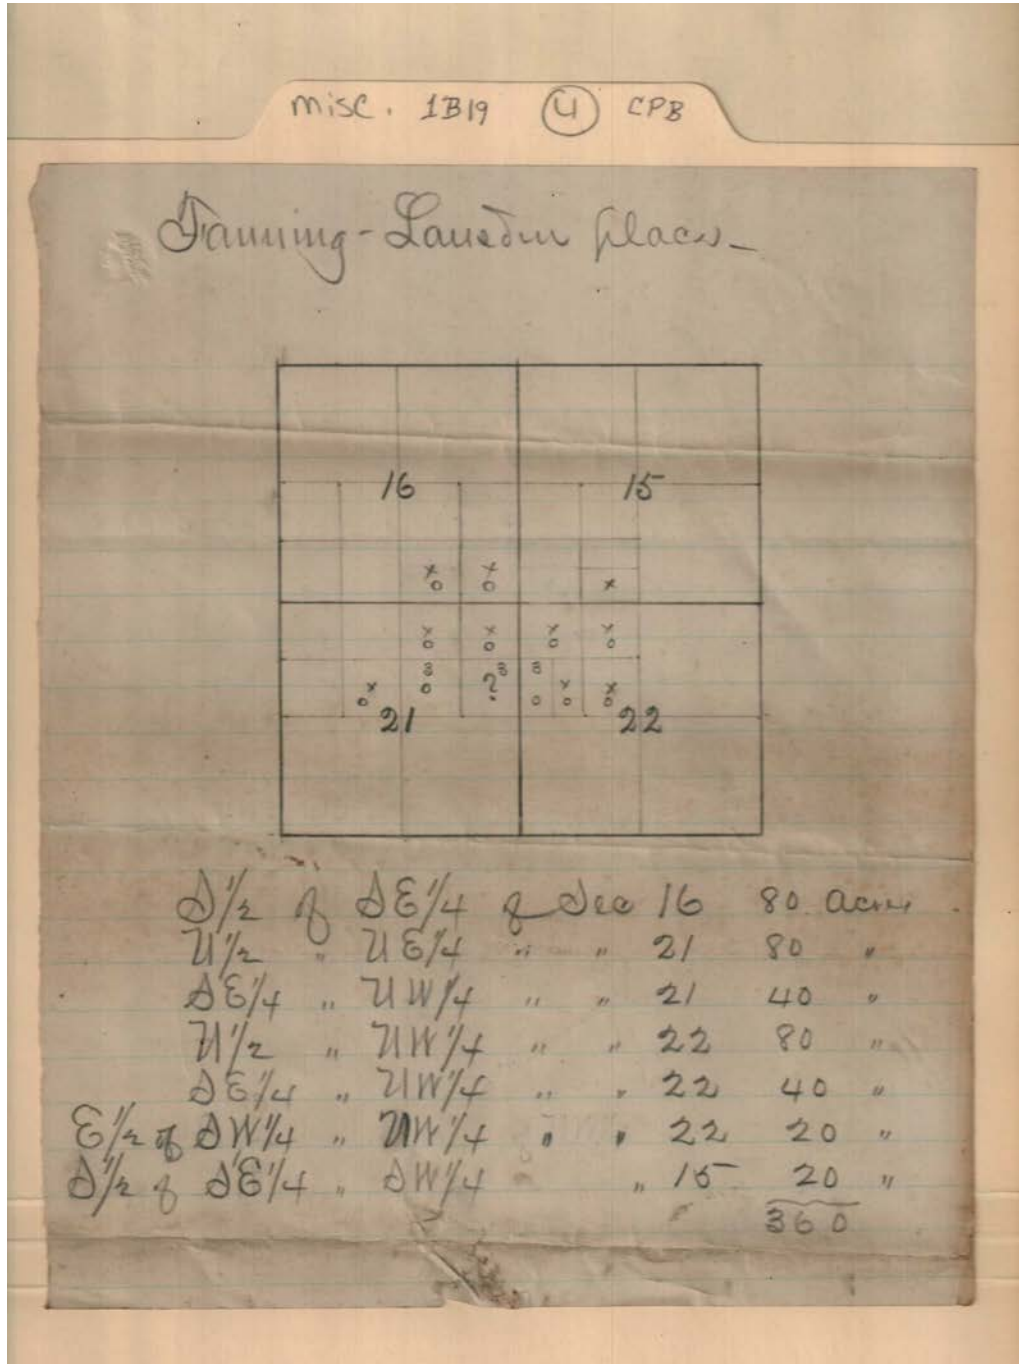 misc. 1B19 (4) CPB
Fanning - Places -
16 15
x x
o o x
x x x x
o o o o
8 8 8
x o ? o x x
o o o
21 22
S 1/2 of SE 1/4 of Sec 16 80 acres
N 1/2 " NE 1/4 " " 21 80 "
SE 1/4 " NW 1/4 " " 21 40 "
N 1/2 " NW 1/4 " " 22 80 "
SE 1/4 " NW 1/4 " " 22 40 "
E 1/2 of SW 1/4 " NW 1/4 " " 22 20 "
S 1/2 of SE 1/4 " SW 1/4 " 15 20 "
360